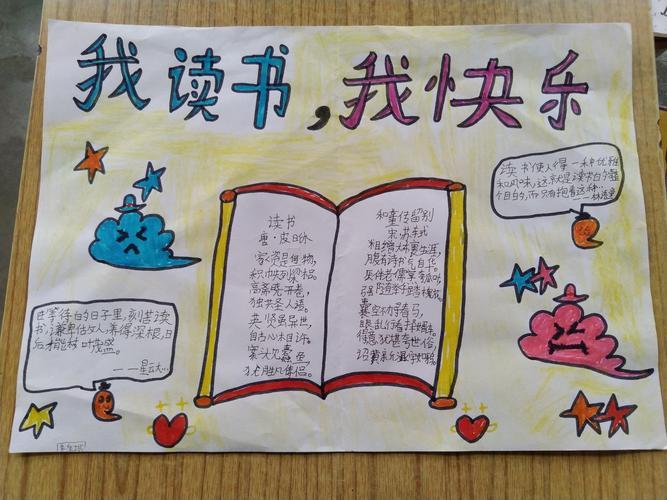 我读书，我快乐
读书使人得一种优雅
和风味，这就是读书的整
个目的，而只有抱着这种
——林语堂
读书
唐·皮日休
家资是何物，
积帙列梁梠。
高斋晓开卷，
独共圣人语。
英贤虽异世，
自古心相许。
案头见蠹鱼，
犹胜凡俦侣。
和董传留别
宋·苏轼
粗缯大布裹生涯，
腹有诗书气自华。
厌伴老儒烹瓠叶，
强随举子踏槐花。
囊空不办寻春马，
眼乱行看择婿车。
得意犹堪夸世俗，
诏黄新湿字如鸦。
在等待的日子里，刻苦读
书，谦卑做人，养得深根，日
后才能枝叶茂盛。
——星云大